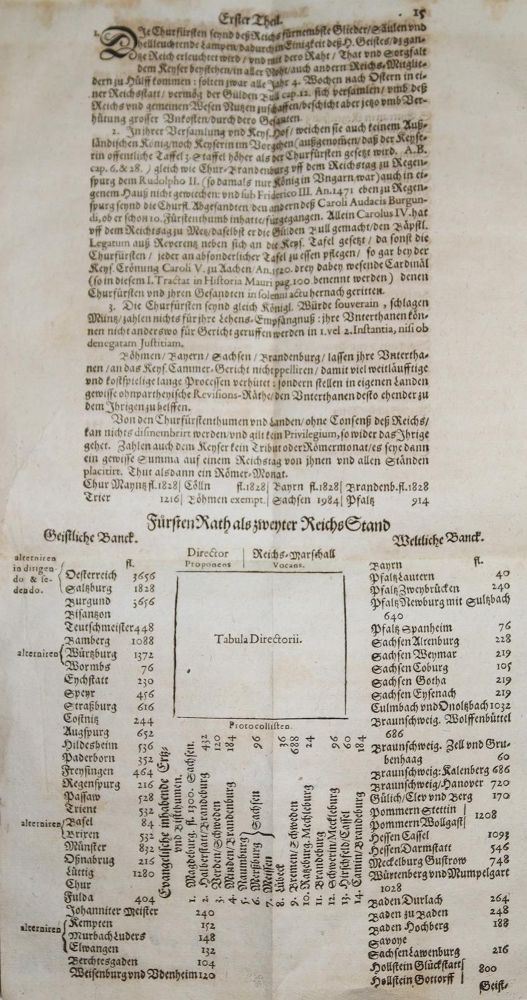 Erster Theil. 15
1. DIe Churfürsten seynd deß Reichs fürnembste Glieder/Säulen vnd
hellleuchtende Lampen/dadurch in Einigkeit deß H. Geistes/dz gan-
tze Reich erleuchtet wird/vnd mit dero Raht/That vnd Sorgfalt
dem Keyser beystehen/in aller Noht/auch andern Reichs-Mitglie-
dern zu Hülff kommen: solten zwar alle Jahr 4. Wochen nach Ostern in ei-
ner Reichsstatt/vermög der Gülden Bull cap. 12. sich versamlen/vmb deß
Reichs vnd gemeinen Wesen Nutzen zuschaffen/beschicht aber jetzo vmb Ver-
hütung grosser Vnkosten/durch dero Gesanten.
2. In ihrer Versamlung vnd Keys. Hof/weichen sie auch keinem Auß-
ländischen König/noch Keyserin im Vorgehen/außgenomen/daß der Keyse-
rin offentliche Taffel 3. Staffel höher als der Churfürsten gesetzt wird. A.B.
cap. 6. & 28.) gleich wie Chur-Brandenburg vff dem Reichstag zu Regen-
spurg dem Rudolpho II. (so damals nur König in Vngarn war) auch in ei-
genem Hauß nicht gewichen: vnd sub Friderico III. An. 1471 eben zu Regen-
spurg seynd die Churfl. Abgesandten den andern deß Caroli Audacis Burgun-
di, ob er schon 10. Fürstenthumb inhatte/fürgegangen. Allein Carolus IV. hat
vff dem Reichstag zu Metz/daselbst er die Gülden Bull gemacht/den Bäpstl.
Legatum auß Reverentz neben sich an die Keys. Tafel gesetzt/da sonst die
Churfürsten/jeder an absonderlicher Tafel zu essen pflegen/so gar bey der
Keys. Crönung Caroli V. zu Aachen/An. 1520. drey dabey wesende Cardinäl
(so in diesem I. Tractat in Historia Mauri pag. 100 benennt werden) denen
Churfürsten vnd jhren Gesandten in solenni actu hernach geritten.
3. Die Churfürsten seynd gleich Königl. Würde souverain, schlagen
Müntz/zahlen nichts für ihre Lehens-Empfängnuß: ihre Vnterthanen kön-
nen nicht anderswo für Gericht geruffen werden in 1. vel 2. Instantia, nisi ob
denegatam Justitiam.
Böhmen/Bayern/Sachsen/Brandenburg/lassen jhre Vnterthanen
nen/an das Keys. Cammer-Gericht nicht appelliren/damit viel weitläufftige
vnd kostspielige lange Processen verhütet: sondern stellen in eigenen Landen
gewisse ohnpartheyische Revisions-Räthe/den Vnterthanen desto ehender zu
dem Jhrigen zu helffen.
Von den Churfürstenthumen vnd Landen/ohne Consenß deß Reichs/
kan nichts dismembrirt werden/vnd gilt kein Privilegium, so wider das Jhrige
gehet. Zahlen auch dem Keyser kein Tribut oder Römermonat/es seye dann
ein gewisse Summa auf einem Reichstag von jhnen vnd allen Ständen
placitirt. Thut alsdann ein Römer-Monat.
Chur Mayntz fl. 1828 | Cölln fl. 1828 | Bayrn fl. 1828 | Brandenb. fl. 1828
Trier 1216 | Böhmen exempt. | Sachsen 1984 | Pfaltz 914
Fürsten Rath als zweyter Reichs Stand
Geistliche Banck.
Weltliche Banck.
Director
Proponens
Reichs-Marschall
Vocans.
Tabula Directorii.
Protocollisten.
alterniren
in dirigen-
do & se-
dendo.
fl.
Oesterreich 3656
Saltzburg 1828
Burgund 3656
Bisantzon
Teutschmeister 448
Bamberg 1088
alterniren
Würtzburg 1372
Wormbs 76
Eychstatt 230
Speyr 456
Straßburg 616
Costnitz 244
Augspurg 652
Hildesheim 536
Paderborn 352
Freysingen 464
Regenspurg 216
Passaw 528
Trient 532
alterniren
Basel 84
Brixen 532
Münster 832
Oßnabrug 216
Lüttig 1280
Chur
Fulda 404
Johanniter Meister 240
alterniren
Kempten 152
Murbach Luders 148
Elwangen 132
Berchtesgaden 104
Weisenburg vnd Vdenheim 120
Evangelische inhabende Ertz-
vnd Bisthumen.
1. Magdeburg. fl. 1300. Sachsen.
2. Halberstatt/Brandeburg 432
3. Verden/Schweden 120
4. Minden/Brandeburg 184
5. Naumburg
6. Merßburg
7. Meissen
Sachsen 96
8. Lübeck 36
9. Bremen/Schweden 688
10. Ratzeburg/Mechleburg 24
11. Brandeburg
12. Schwerin/Meckleburg 96
13. Hirschfeld/Cassel 60
14. Camin/Brandeburg 184
fl.
Bayrn
Pfaltz Lautern 40
Pfaltz Zweybrücken 240
Pfaltz Newburg mit Sultzbach
640
Pfaltz Spanheim 76
Sachsen Altenburg 228
Sachsen Weymar 219
Sachsen Coburg 105
Sachsen Gotha 219
Sachsen Eysenach 219
Culmbach vnd Onoltzbach 1032
Braunschweig. Wolffenbüttel
686
Braunschweig. Zell vnd Gru-
benhaag 60
Braunschweig: Kalenberg 686
Braunschweig/Hanover 720
Gülich/Clev vnd Berg 170
Pommern Stettin
Pommern Wollgast
1208
Hessen Cassel 1093
Hessen Darmstatt 546
Meckelburg Gustrow 748
Würtenberg vnd Mumpelgart
1028
Baden Durlach 264
Baden zu Baden 248
Baden Hochberg 188
Savoye
Sachsen Lawenburg 216
Hollstein Glückstatt
Hollstein Gottorff
800
Geist-